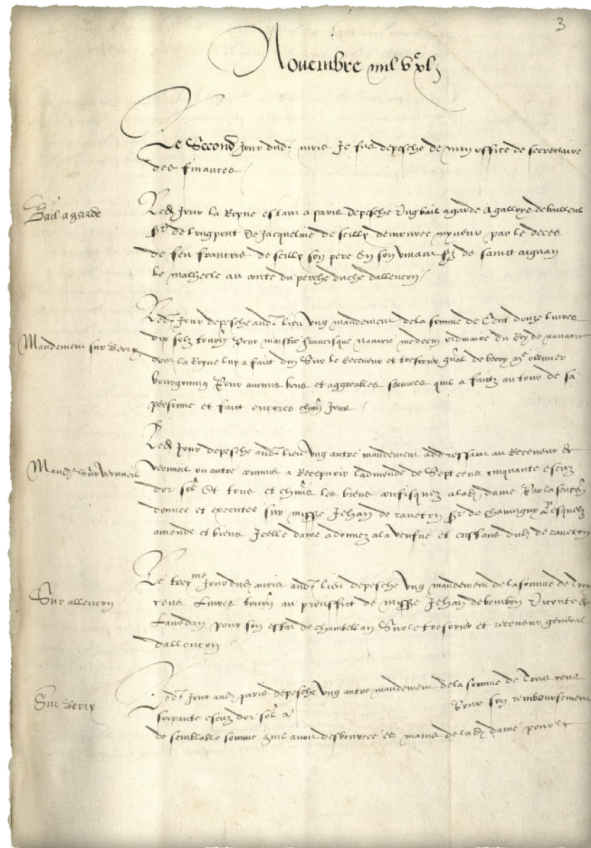 3
Novembre mil vc xlj
Le Second jour dud. mois Je fus depesche de mon office de secretaire
des finances
Bail a garde
Led. jour la Royne estant a paris depesche Ung bail a garde a galloys de bailleul
sr de longpont De Jacqueline de scilly demouree myneur par le deces
de feu francois de scilly son pere En son vivant sr de sainct aignan
le malhecle au conte du perche duche dallencon
Mandement sur Berry
Led. jour depesche aud. lieu ung mandement de la somme de Cent douze livres
dix solz tourn. Pour maistre francisque navarre medecin ordinaire du Roy de navarre
dont la Royne luy a faict don Sur le Receveur et tresorier gnal de berry me ollivier
bourgoing Pour aucuns bons et aggreables services quil a faictz au tour de sa
personne et faict encores chun jour
Led. jour depesche aud. lieu Ung autre mandement addressant au Receveur de
verneil ou autre commis a Recepvoir ladmende de Sept cens cinquante escuz
dor sol. Et tous et chuns les biens confisquez a lad. dame Par la senten
donnee et executee sur messe Jehan de raveton sr de chauvigny Lesquelz
amende et biens Icelle dame a donnez a la veufve et enffans dud. de raveton
Sur allencon
Le trexme jour dud. mois aud. lieu depesche Ung mandement de la somme de
cens Livres tourn. au prouffict de messe Jehan de bourbon Viconte de
Lavedan pour son estat de chambellan Sur le tresorier et receveur general
dallencon
Sur Berry
Led. jour aud. paris depesche ung autre mandement de la somme de Trois cens
soixante escuz dor sol. a Pour son remboursement
de semblable somme quil avoit desboursee es mains de lad. dame pour